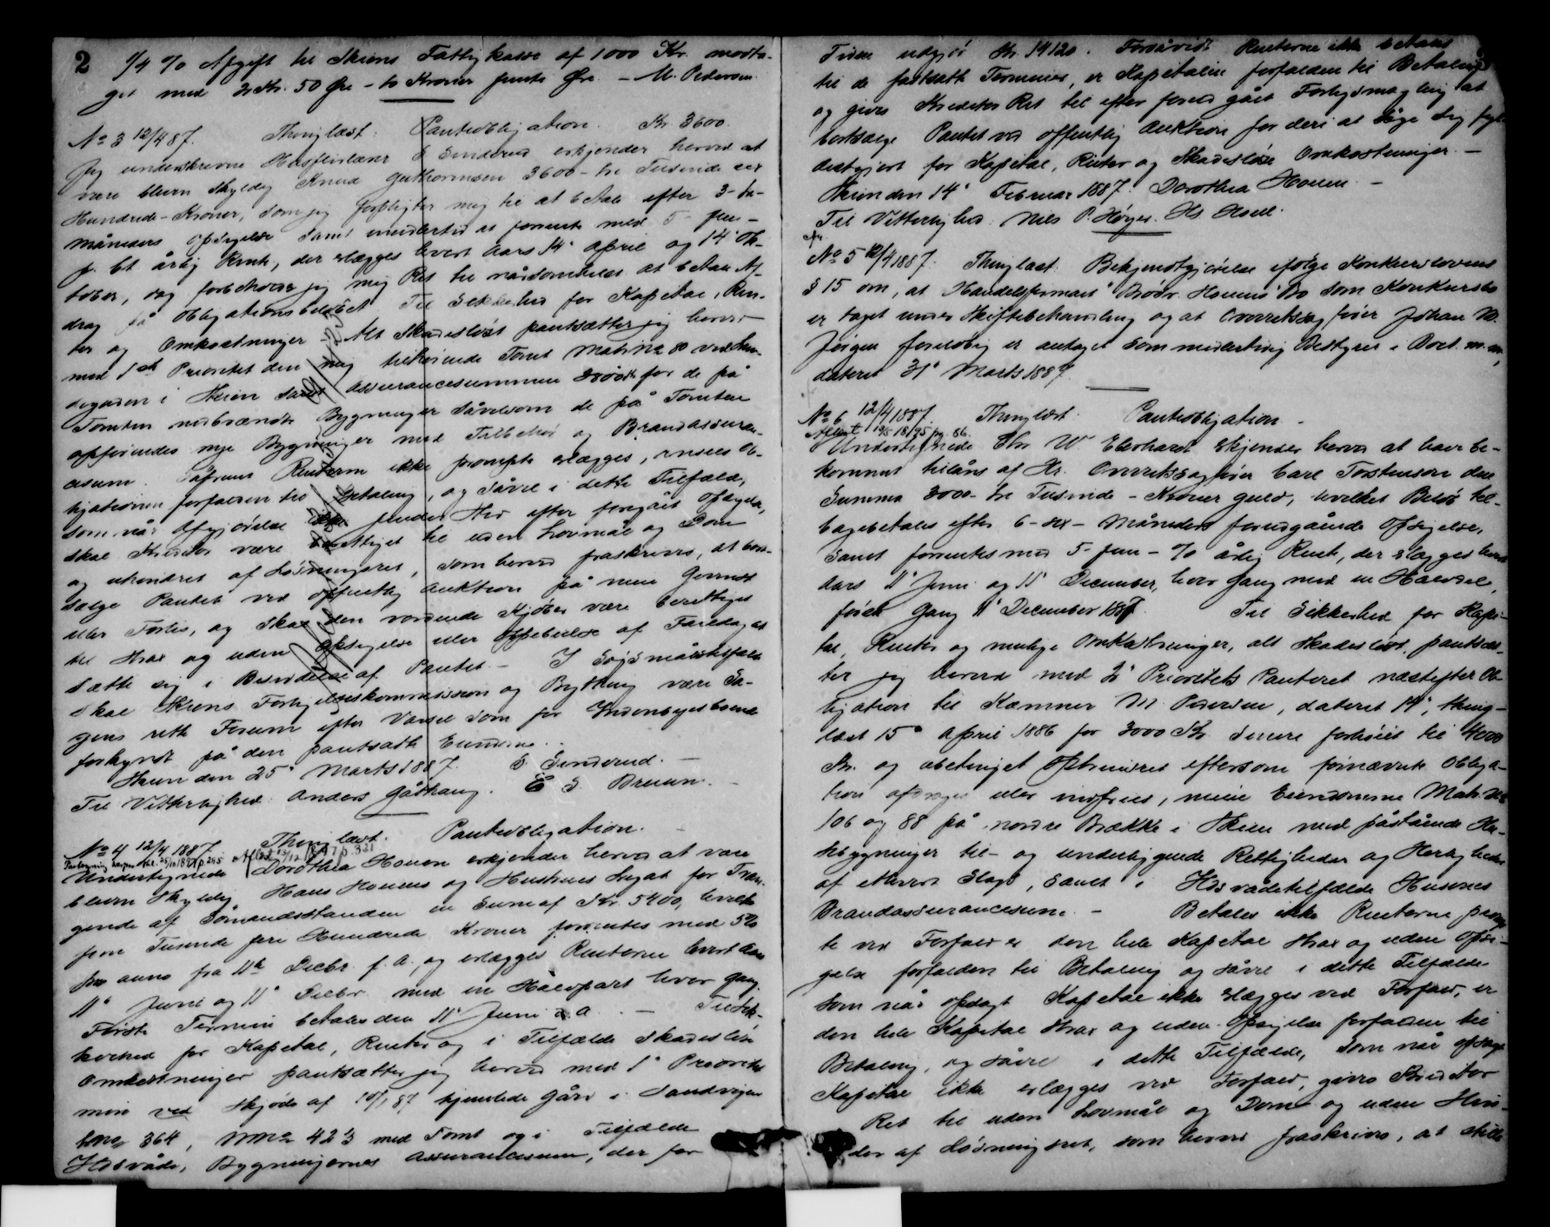 2
1/4 % Afgift til Skiens Fattigkasse af 1000 Kr modta-
get med 2 Kr. 50 Øre - to Kroner femti Øre - M. Pedersen
No 3 12/4 87. Thinglæst. Pantobligation. Kr 3600
Jeg underskrevne E Senderud erkjender herved at
være bleven skyldig Knud Guthormsen 3600 - tre Tusinde sex
Hundrede - Kroner, som jeg forpligter mig til at betale efter 3 - tre
måneders Opsigelse samt imidlertid at forrente med 5 - fem -
p. Ct årlig Rente, der erlægges hvert Aars 14 April og 14 Ok-
tober, dog forbeholder jeg mig Ret til når somhelst at betale Af-
drag på Obligationsbeløbet Til Sikkerhed for Kapital, Ren-
ter og Omkostninger Alt Skadesløst pantsætter jeg herved
med 1ste Prioritet den mig tilhørende Tomt Matr No 80 ved
i Skien samt Assurancesummen for de på
Tomten nedbrændte Bygninger såvelsom de på Tomten
opførendes nye Bygninger med Tilbehør og Brandassuran-
cesum. Såfremt Renterne ikke prompte erlægges, ansees Ob-
ligationen forfalden til Betaling, og såvel i dette Tilfælde,
som når Afgjørelse ikke finder Sted efter foregået Opsigelse,
skal Kreditor være berettiget til uden Lovmål og Dom
og uhindret af Løsningsret, som herved fraskrives, at bort-
sælge Pantet ved offentlig Auktion på min Gevinst
eller Forlis, og skal den vordende Kjøber være berettiget
til strax og uden Opsigelse eller Oppebielse af Faredag at
sætte sig i Besiddelse af Pantet. - I Søgsmålstilfælde
skal Skiens Forligelseskommission og Bything være Sa-
gens rette Forum efter Varsel som for Indenbyesboende
forkyndt på den pantsatte Eiendom.
Skien den 25 Marts 1887. E Senderud. -
Til Vitterlighed: Anders Gåshaug. E S Bruun. -
No 4 12/4 1887. Thinglæst. Pantobligation. -
Undertegnede Dorothea Houen erkjender herved at være
bleven skyldig Hans Houens og Hustrues Legat for Træn-
gende af Sømandsstanden en Sum af Kr 5400, skriver
fem Tusinde fire Hundrede Kroner forrentes med 5%
pro anno fra 11te Decbr. f. A., og erlægges Renterne hvert Aars
11 Juni og 11 Decbr med en Halvpart hver Gang.
Første Termin betales den 11 Juni d. A. - Til Sik-
kerhed for Kapital, Renter og i Tilfælde Skadesløse
Omkostninger pantsætter jeg herved med 1 Prioritet
min ved Skjøde af 10/1 87 hjemlede Gård i Sandvigen
364, MNo 423 med Tomt og i Tilfælde
Ildsvåde, Bygningernes Assurancesum, der for
Tiden udgjør Kr. 14120. Forsåvidt Renterne ikke betales
til de fastsatte Terminer, er Kapitalen forfalden til Betaling
og gives Kreditor Ret til efter forud gået Forligsmægling at
bortsælge Pantet ved offentlig Auktion for deri at søge sig fyl-
destgjort for Kapital, Renter og Skadesløse Omkostninger. -
Skien den 14 Februar 1887. Dorothea Houen. -
Til Vitterlighed. Nils P. Høyer.
No 5 12/4 1887. Thinglæst. Bekjendtgjørelse ifølge Konkurslovens
§ 15 om, at Handelsfirmaet Brødr. Houens Bo som Konkursbo
er taget under Skiftebehandling og at Overretssagfører Johan W.
Jørgen foreløbig er antaget som midlertidig Bestyrer i Boet m. m.,
dateret 31 Marts 1887.
No 6 12/4 1887. Thinglæst. Pantobligation. -
Undertegnede W Eberhardt erkjender herved at have be-
kommet tillåns af Hr. Overretssagfører Carl Torstensen den
Summa 3000 - tre Tusinde - Kroner Guld, hvilket Beløb til-
bagebetales efter 6 - sex - Måneders forudgående Opsigelse,
samt forrentes med 5 - fem - % årlig Rente, der erlægges hvert
Aars 11 Juni og 11 December, hver Gang med en Halvdel,
første Gang 11 December 1887. Til Sikkerhed for Kapi-
tal, Renter og mulige Omkostninger, alt skadesløst, pantsæt-
ter jeg herved med 2 Prioritets Panteret næstefter Ob-
ligation til Kæmner M. Pedersen, dateret 14, thing-
læst 15 April 1886 for 3000 Kr senere forhøiet til 4000
Kr. og obetinget Optrinsret eftersom førnævnte Obliga-
tion afdrages eller indfries, mine Eiendomme Matr. No
106 og 88 på nordre Brække i Skien med påstående Hu-
sebygninger til- og underliggende Rettigheder og Herligheder
af ethvert Slags, samt i Ildsvådetilfælde Husenes
Brandassurancesum. - Betales ikke Renterne promp-
te ved Forfald er den hele Kapital strax og uden Opsi-
gelse forfalden til Betaling og såvel i dette Tilfælde
som når opsagt Kapital ikke erlægges ved Forfald, er
den hele Kapital strax og uden Opsigelse forfalden til
Betaling, og såvel i dette Tilfælde, som når opsagt
Kapital ikke erlægges ved Forfald, gives Kreditor
Ret til uden Lovmål og Dom og uden Hin-
der af Løsningsret, som herved fraskrives, at stille